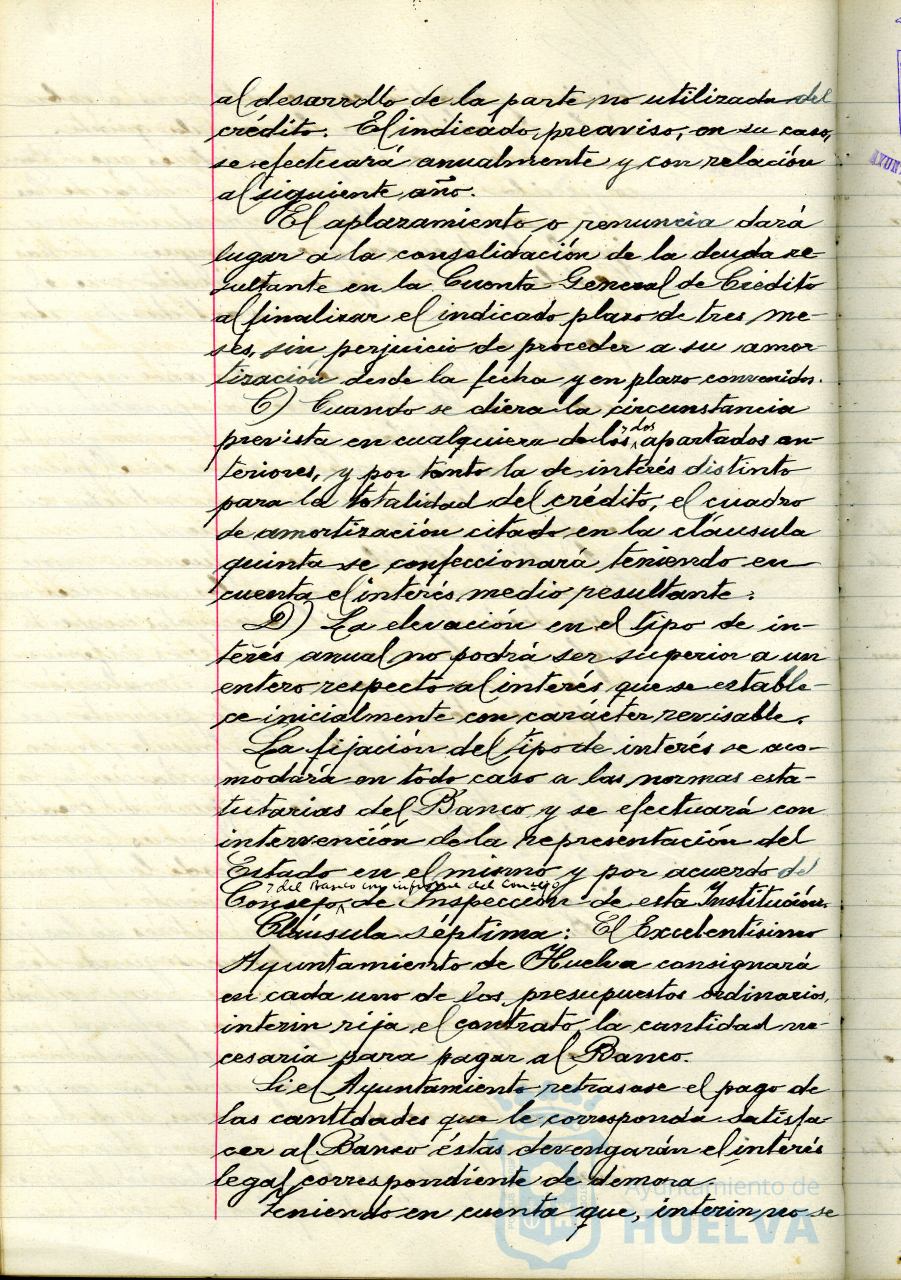 al desarrollo de la parte no utilizada del
crédito. El indicado, preaviso, en su caso,
se efectuará anualmente y con relación
al siguiente año.
El aplazamiento o renuncia dará
lugar a la consolidación de la deuda re-
sultante en la Cuenta General de Crédito
al finalizar el indicado plazo de tres me-
ses, sin perjuicio de proceder a su amor-
tización desde la fecha y en plazo convenidos.
C) Cuando se diera la circunstancia
prevista en cualquiera de los dos apartados an-
teriores, y por tanto la de interés distinto
para la totalidad del crédito, el cuadro
de amortización citado en la cláusula
quinta se confeccionará teniendo en
cuenta el interés medio resultante.
D) La elevación en el tipo de in-
terés anual no podrá ser superior a un
entero respecto al interés que se estable-
ce inicialmente con carácter revisable.
La fijación del tipo de interés se aco-
modará en todo caso a las normas esta-
tutarias del Banco y se efectuará con
intervención de la representación del
Estado en el mismo y por acuerdo del
Consejo, del Banco con informe del Consejo
de Inspección de esta Institución.
Cláusula séptima: El Excelentísimo
Ayuntamiento de Huelva consignará
en cada uno de los presupuestos ordinarios,
interin rija el contrato, la cantidad ne-
cesaria para pagar al Banco.
Si el Ayuntamiento retrasase el pago de
las cantidades que le corresponda satisfa-
cer al Banco éstas devengarán el interés
legal correspondiente de demora.
Teniendo en cuenta que, interin no se
Ayuntamiento de
HUELVA